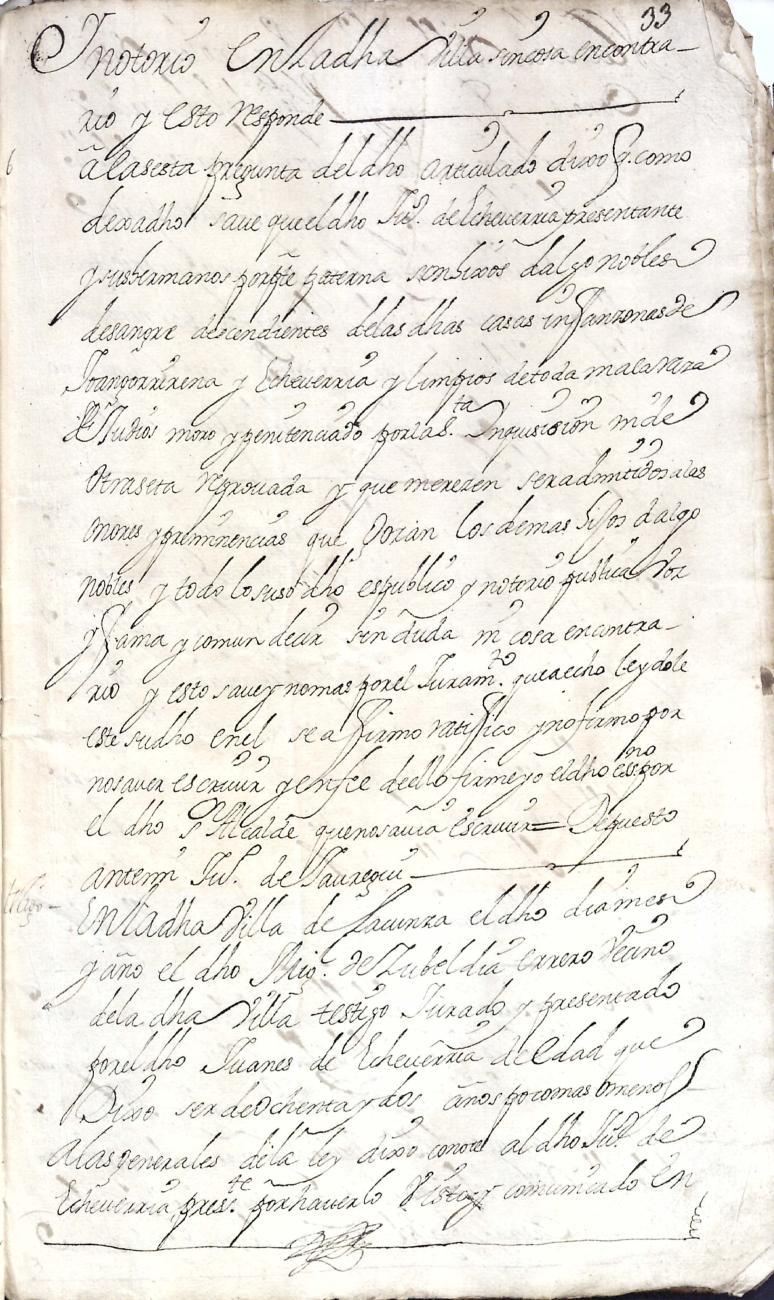 33
Y notorio En La dha Villa sin cosa en contra-
rio y esto responde
6
a la sesta pregunta del dho articulado dixo q. como
dexa dho saue que el dho Jua. de Echeverria presentante
y sus hermanos por pte paterna son hixos dalgo nobles
de sangre decendientes de las dhas casas infanzonas de
y Echeverria y limpios de toda mala raza
de Judios moro y penitenciado por la s.ta Inquisicion ni de
otra seta reprouada y que merezen ser admitidos a las
onores y preminencias que gozan los demas hijos dalgo
nobles y todo lo suso dho es publico y notorio publica voz
y fama y comun decir sin duda ni cosa en contra-
rio y esto saue y no mas por el Juram.to que a echo leydole
este su dho en el se afirmo ratifico y no firmo por
no sauer escriuir y en fee de ello firme yo el dho ess.no por
el dho S.r Alcalde que no sauia escriuir = De questo
ante mi Ju.o de Jauregui
testigo -
En la dha Villa de Lacunza el dho dia mes
y año el dho Mig.l de Zubeldia errero Vecino
de la dha Villa testigo Jurado y presentado
por el dho Juanes de Echeverria de edad que
Dixo ser de ochenta y dos años poco mas o menos
A las generales de la ley dixo conoce al dho Jua. de
Echeverria pres.te por hauerlo Visto y comunicado En